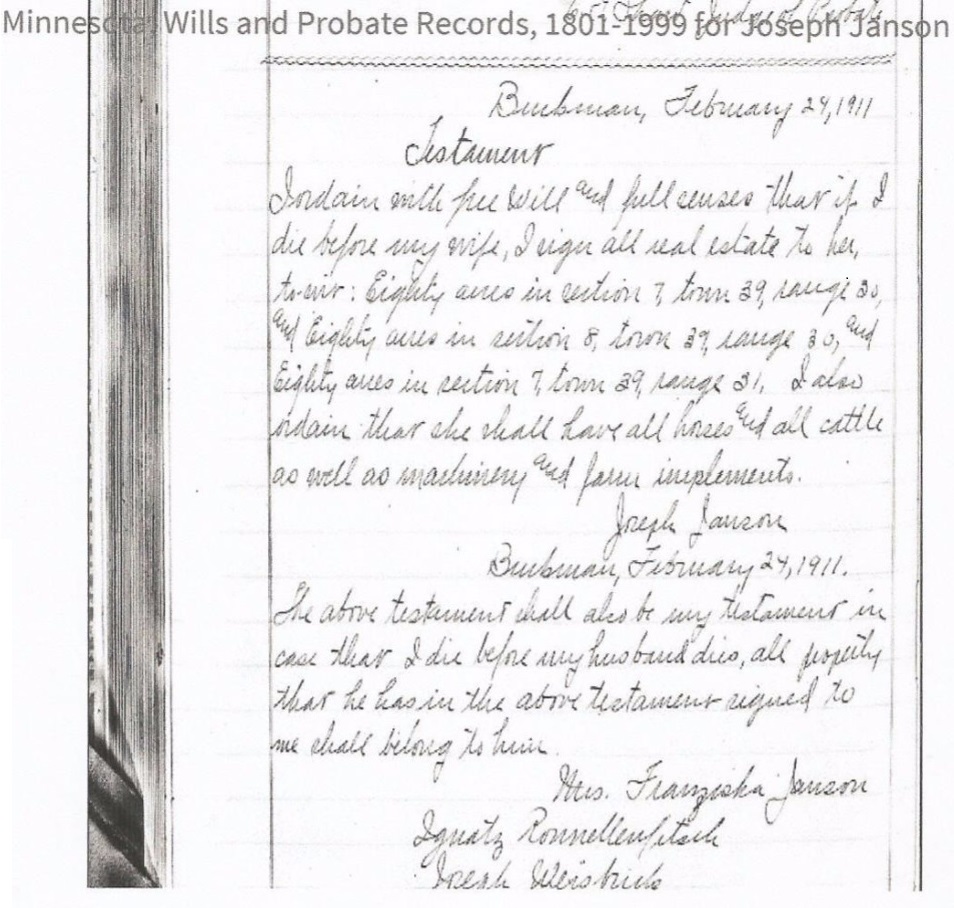 Judge of Probate
Minnesota, Wills and Probate Records, 1801-1999 for Joseph Janson
Buckman, February 24, 1911
Testament
I ordain with free will and full senses that if I
die before my wife, I sign all real estate to her,
to-wit: Eighty acres in section 7, town 39, range 30,
and Eighty acres in section 8, town 39, range 30, and
Eighty acres in section 7, town 39, range 31. I also
ordain that she shall have all horses and all cattle
as well as machinery and farm implements.
Joseph Janson
Buckman, February 24, 1911.
The above testament shall also be my testament in
case that I die before my husband dies, all property
that he has in the above testament signed to
me shall belong to him.
Mrs. Franziska Janson
Ignatz Ronnellenfitsch
Joseph